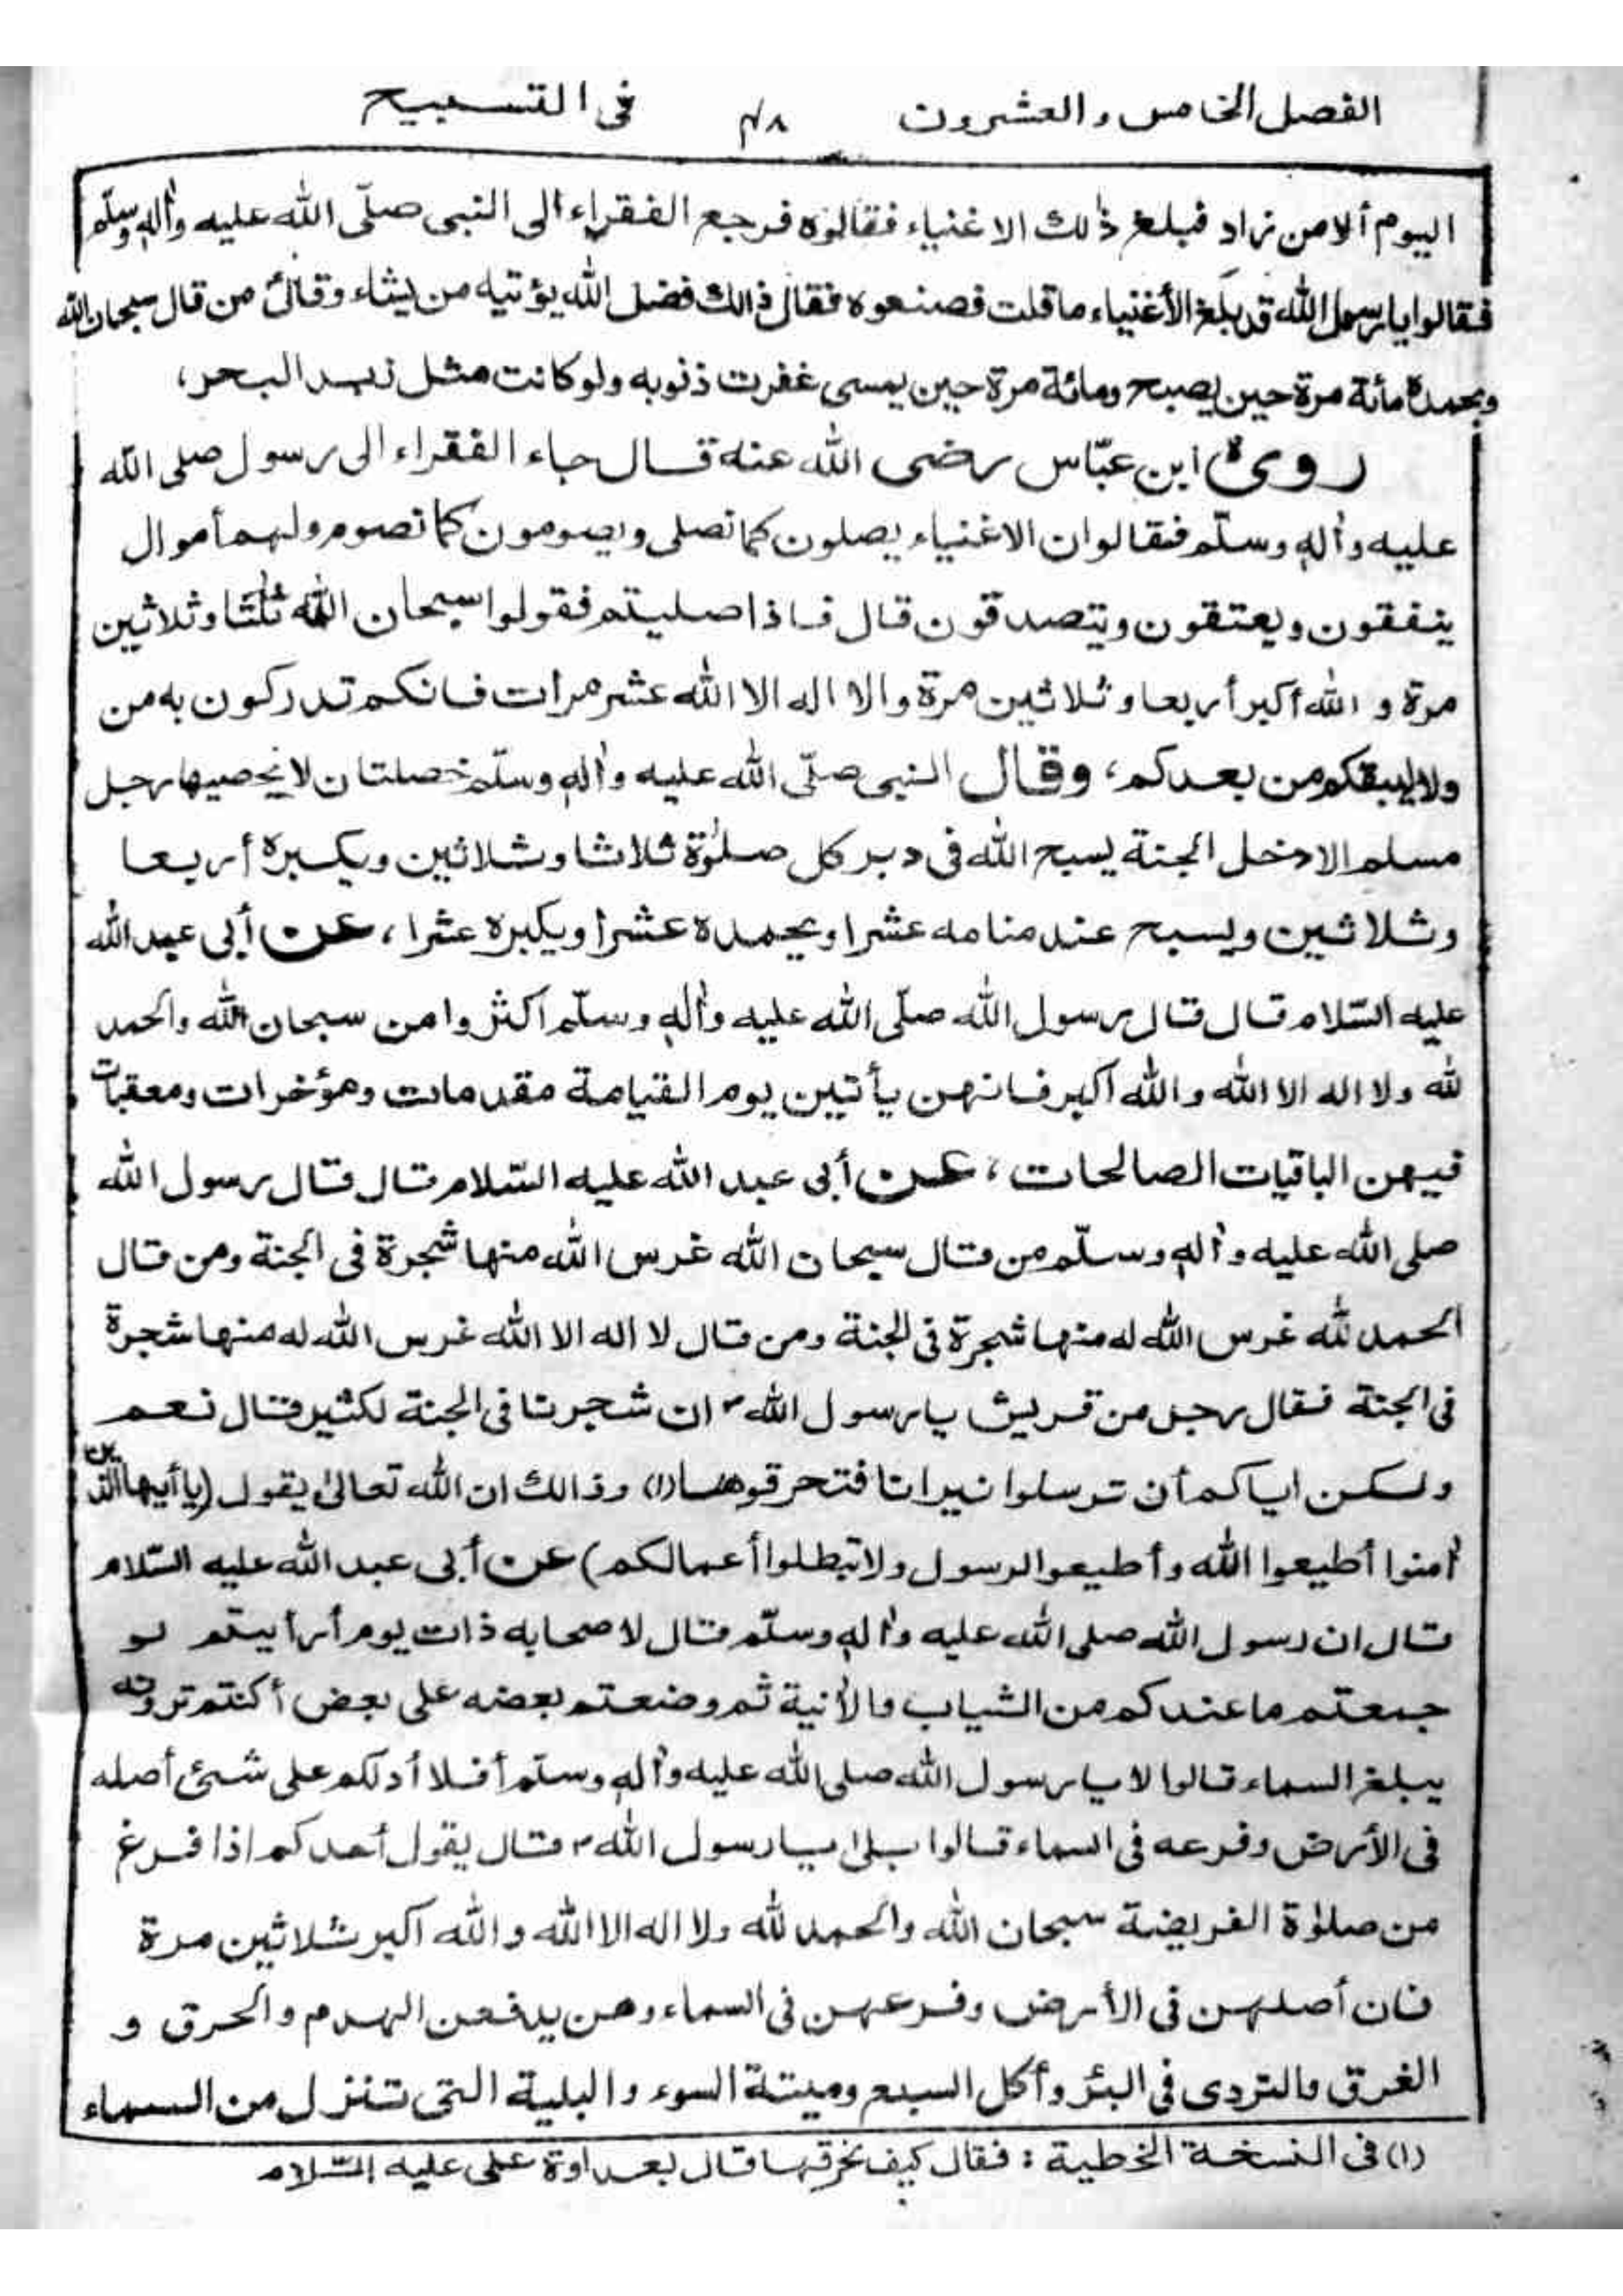 الفصل الخامس والعشرون ٤٨ فى التسبيح
اليوم ألا من زاد فبلغ ذٰلك الاغنياء فقالوه فرجع الفقراء الى النبى صلّى الله عليه واٰلهٖ وسلّم
فقالوا يا رسول الله قد بلغ الأغنياء ما قلت فصنعوه فقال ذالك فضل الله يؤتيه من يشاء وقال من قال سبحان الله
وبحمدهٖ مأئة مرة حين يصبح ومائة مرة حين يمسى غفرت ذنوبه ولو كانت مثل زبد البحر،
روى ابن عبّاس رضى الله عنه قال جاء الفقراء الى رسول صلى الله
عليه واٰلهٖ وسلّم فقالوا ان الاغنياء يصلون كما نصلى ويصومون كما نصوم ولهم أموال
ينفقون ويعتقون ويتصدقون قال فاذا صليتم فقولوا سبحان الله ثلٰثا وثلاثين
مرة و الله أكبر أربعا وثلاثين مرة والا اله الا الله عشر مرات فانكم تدركون به من
ولا يسبقكم من بعدكم، وقال النبى صلّى الله عليه واٰلهٖ وسلّم خصلتان لا يحصيها رجل
مسلم الا دخل الجنة يسبح الله فى دبر كل صلوٰة ثلاثا وثلاثين ويكبره أربعا
وثلاثين ويسبح عند منامه عشرا ويحمده عشرا ويكبره عشرا، عن أبى عبد الله
عليه السّلام قال قال رسول الله صلّى الله عليه واٰلهٖ وسلّم اكثروا من سبحان الله والحمد
لله ولا اله الا الله والله اكبر فانهن يأتين يوم القيامة مقدمات ومؤخرات ومعقبات
فيهن الباقيات الصالحات، عن أبى عبد الله عليه السّلام قال قال رسول الله
صلى الله عليه واٰلهٖ وسلّم من قال سبحان الله غرس الله منها شجرة فى الجنة ومن قال
الحمد لله غرس الله له منها شجرة فى الجنة ومن قال لا اله الا الله غرس الله له منها شجرة
فى الجنة فقال رجل من قريش يا رسول الله ان شجرنا فى الجنة لكثير قال نعم
ولكن اياكم أن ترسلوا نيرانا فتحرقوها (١) وذالك ان الله تعالىٰ يقول (يا أيها الذين
اٰمنوا أطيعوا الله وأطيعوا الرسول ولا تبطلوا أعمالكم) عن أبى عبد الله عليه السّلام
قال ان رسول الله صلى الله عليه واٰلهٖ وسلّم قال لاصحابه ذات يوم أرأيتم لو
جمعتم ما عندكم من الثياب والاٰنية ثم وضعتم بعضه على بعض أكنتم ترونه
يبلغ السماء قالوا لا يا رسول الله صلى الله عليه واٰلهٖ وسلّم أفلا أدلكم على شئ أصله
فى الأرض وفرعه فى السماء قالوا بلىٰ يا رسول الله قال يقول أحدكم اذا فرغ
من صلوٰة الفريضة سبحان الله والحمد لله ولا اله الا الله والله اكبر ثلاثين مرة
فان أصلهن فى الأرض وفرعهن فى السماء وهن يدفعن الهدم والحرق و
الغرق والتردى فى البئر وأكل السبع وميتة السوء والبلية التى تنزل من السماء
(١) فى النسخة الخطية : فقال كيف نحرقها قال بعداوة على عليه السّلام